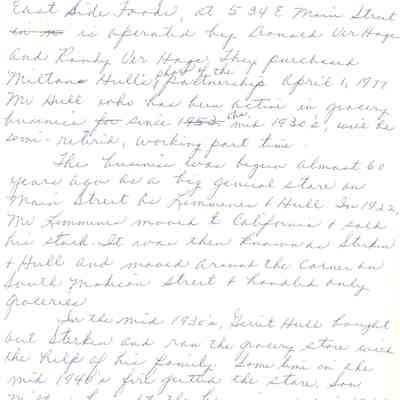 East Side Foods, at 534 E Main Street
is operated by Donald Ver Hage
and Randy Ver Hage. They purchased
Miltons Hull's, part of the partnership April 1, 1977
Mr Hull who has been active in grocery
business for since 1953. the mid 1930's, will be
semi-retired, working part time.
The business was begun almost 60
years ago as a big general store on
Main Street as & Hull. In 1922,
Mr moved to California & sold
his stock. It was then known as
& Hull and moved around the corner on
South Madison Street & handled only
groceries
In the mid 1930's, Gerrit Hull bought
out and ran the grocery store with
the help of his family. Some time on the
mid 1940's fire gutted the store. Son